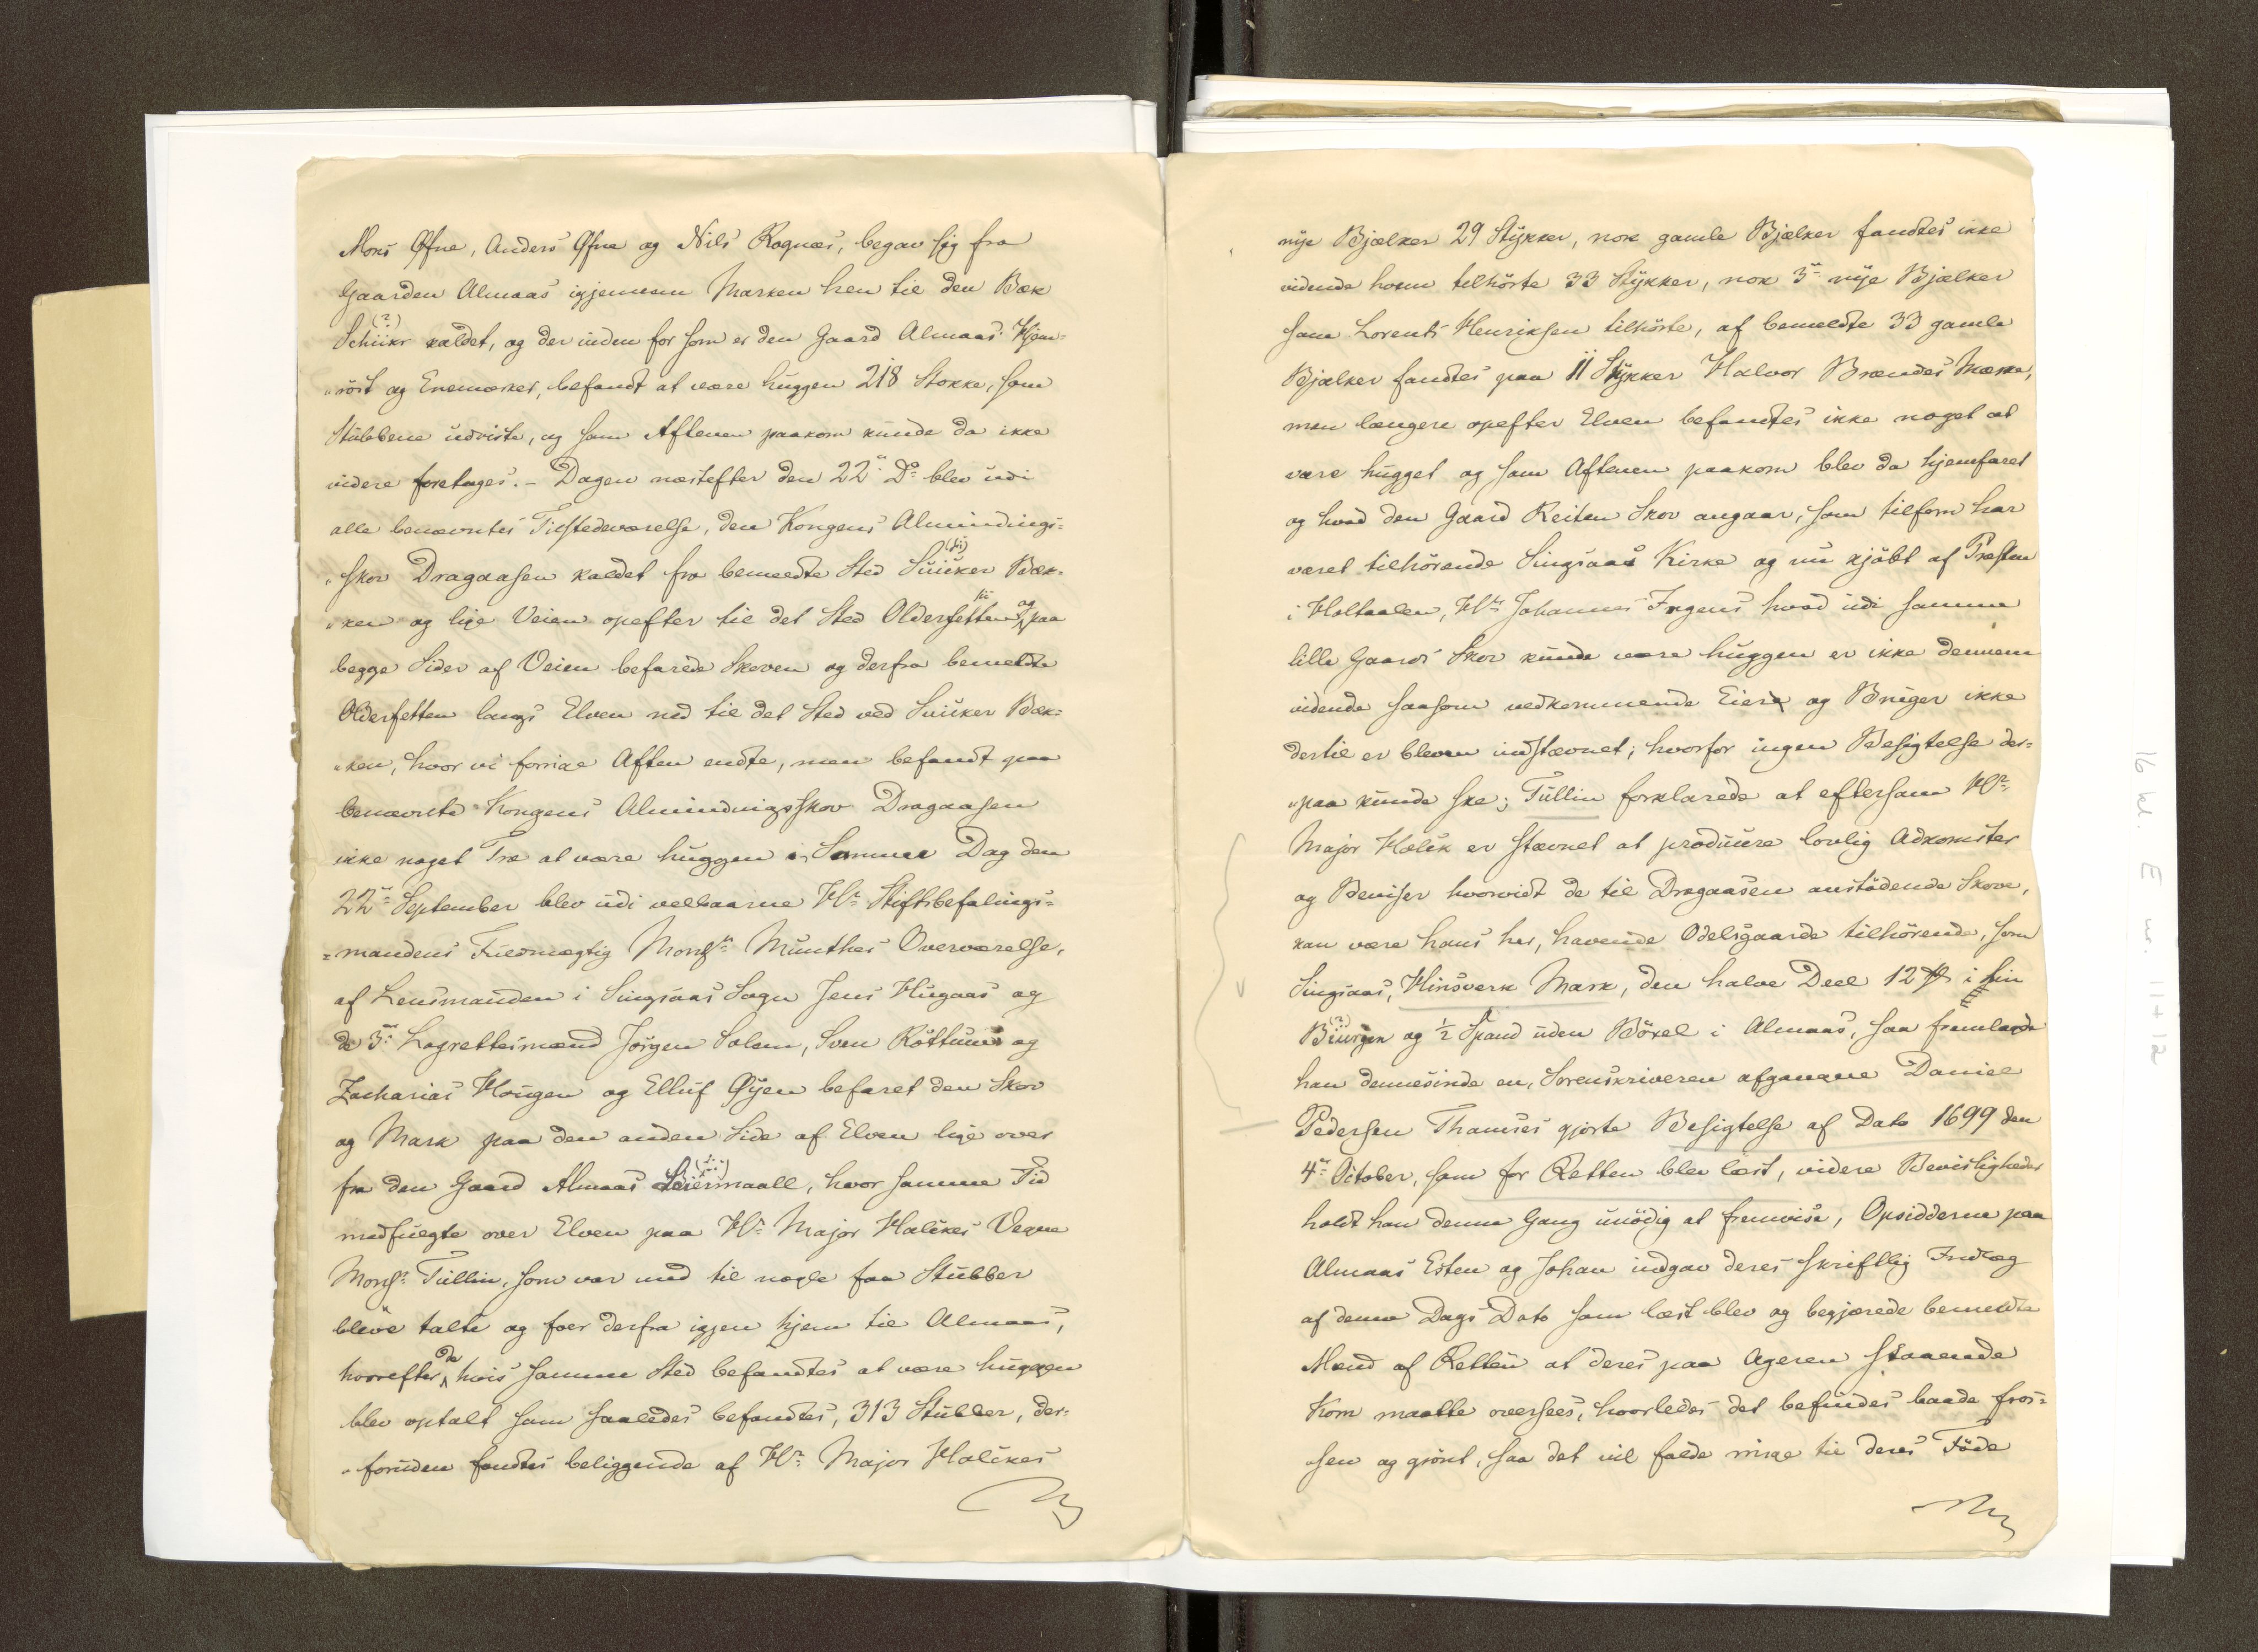 Mons Øfne, Anders Øfne og Nils Rognæs, begav sig fra
Gaarden Almaas igjennem Marken hen til den Bæk
Schiikr (?) kaldet, og der inden for som er den Gaard Almaas Hjem-
"röst og Enemærket, befandt at være huggen 218 Stokke, som
Stubbene udviste, og som Aftenen paakom kunde da ikke
videre foretages. – Dagen næstefter den 22de Do blev udi
alle benævntes Tilstedeværelse, den Kongens Almindings-
"skov Dragaasen kaldet fra bemeldte Sted Suuker Bæk-
"ken og lige Veien opefter til det Sted Oldersetten og paa
begge Sider af Veien befarede Skoven og derfra bemeldte
Oldersetten langs Elven ned til det Sted ved Suuker Bæk-
"ken, hvor vi forrige Aften endte, men befandt paa
benævnte Kongens Almindingsskov Dragaasen
ikke noget Træ at være huggen, Samme Dag den
22de September blev udi velbaarne Hr Stiftsbefalings-
=mandens Fuldmægtig Monsr Munthes Overværelse,
af Lensmanden i Singsaas Sogn Jens Hugaas og
de 3de Lagrettesmænd Jörgen Solem, Sven Röttum og
Zacharias Hougen og Elluf Øyen befaret den Skov
og Mark paa den anden Side af Elven lige over
fra den Gaard Almaas Leiermaall, hvor samme Tid
medfulgte over Elven paa Hr Major Halckes Vegne
Monsr Tullin, som var med til nogle faa Stubber
bleve talte og foer derfra igjen hjem til Almaas,
hvorefter da hvis samme Sted befandtes at være huggen
blev optalt som saaledes befandtes, 313 Stubber, der-
"foruden fandtes beliggende af Hr Major Halckes
nye Bjælker 29 Stykker, nok gamle Bjælker fandtes ikke
vidende hvem tilhörte 33 Stykker, nok 3de nye Bjælker
som Lorents Henriksen tilhörte, af bemeldte 33 gamle
Bjælker fandtes paa 11 Stykker Halvor Brændes Mærke,
men længere opefter Elven befandtes ikke noget at
være hugget og som Aftenen paakom blev da hjemfaret
og hvad den Gaard Reiten Skov angaar, som tilforn har
været tilhörende Singsaas Kirke og nu kjöbt af Præsten
i Holtaalen, Hr Johannes Irgens hvad udi samme
lille Gaards Skov kunde være huggen er ikke dennem
vidende saasom vedkommende Eier og Bruger ikke
dertil er bleven indstævnet; hvorfor ingen Besigtelse der-
"paa kunde ske; Tullin forklarede at eftersom Hr
Major Halck er stævnet at producere lovlig Adkomster
og Beviser hvorvidt de til Dragaasen anstödende Skove,
kan være hans her, havende Odelsgaarde tilhörende, som
Singsaas, Hinsverk Mark, den halve Deel 12 i hin
Buurgen (?) og ½ Spand uden Böxel i Almaas, saa fremlagde
han dennesinde en, Sorenskriveren afgangne Daniel
Pedersen Thamses gjorte Besigtelse af Dato 1699 den
4de October, som for Retten blev læst, videre Bevisligheder
holdt han denne Gang unödig at fremvise, Opsidderne paa
Almaas Esten og Johan indgav deres skriftlig Indlæg
af denne Dags Dato som læst blev og begjærede bemeldte
Mænd af Retten at deres paa Ageren staaende
Korn maatte oversees, hvorledes det befindes baade fros-
sen og grönt, saa det vil falde ringe til deres Föde
16 M. E n. 11+12